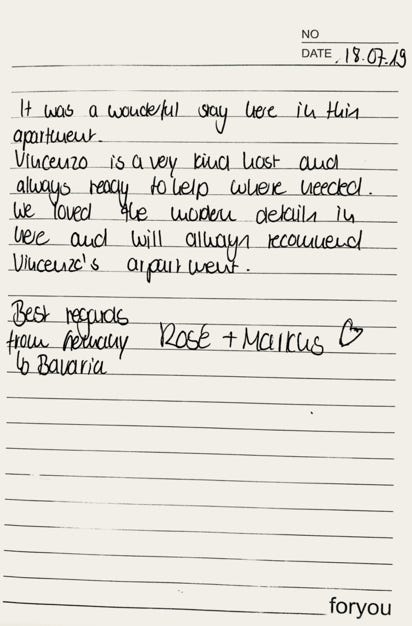 NO
DATE 18.07.19
It was a wonderful stay here in this
apartment.
Vincenzo is a very kind host and
always ready to help where needed.
We loved the modern details in
here and will always recommend
Vincenzo's arpartment.
Best regards
from Germany Rosé + Markus ♡
↳ Bavaria
foryou